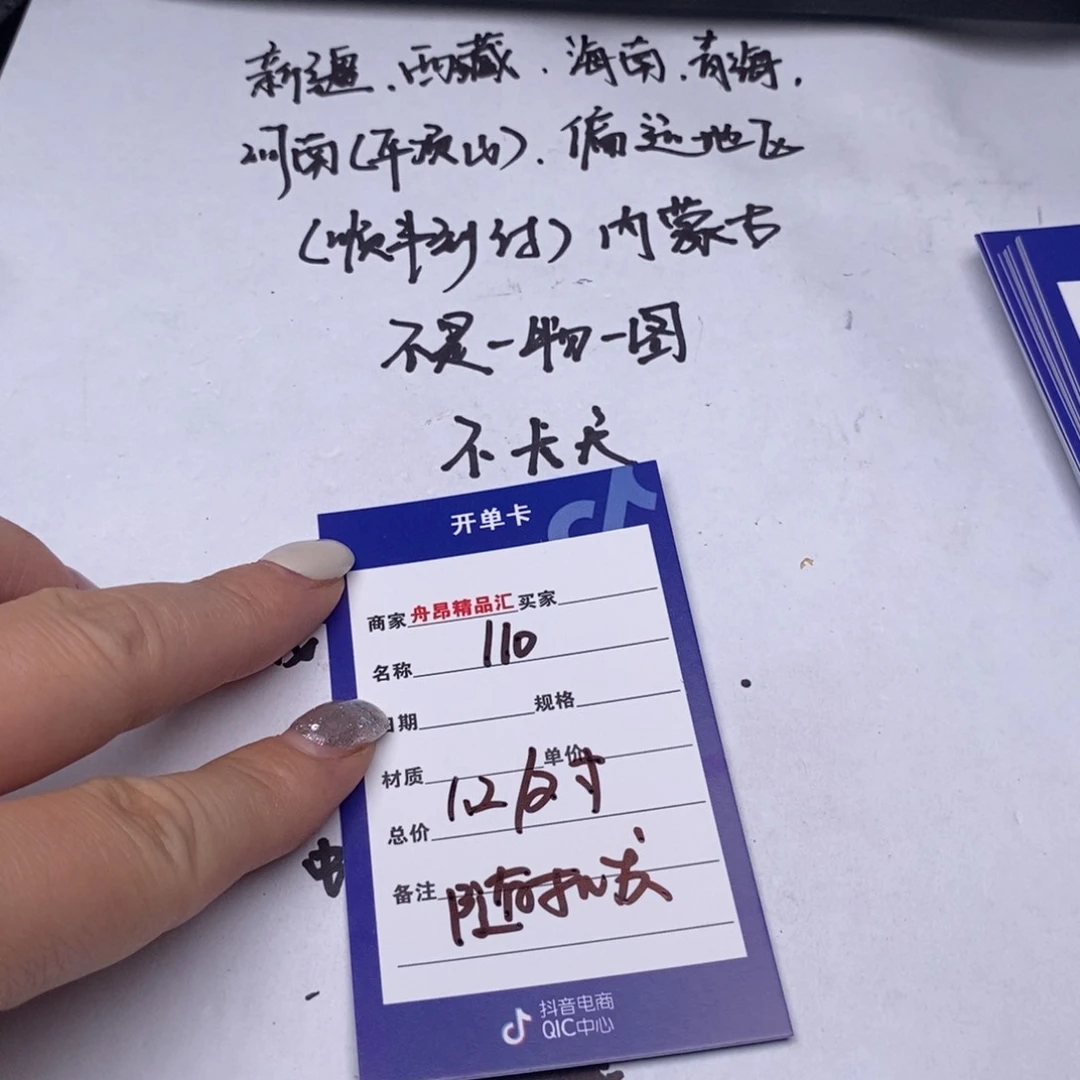 新疆、西藏、海南、青海,
河南(平顶山)、偏远地区
(顺丰到付)内蒙古
不是一物一图
不卡天
开单卡
商家 舟昂精品汇 买家
名称 110
日期 规格
材质 单价
12
总价
备注 随机发
抖音电商
QIC中心